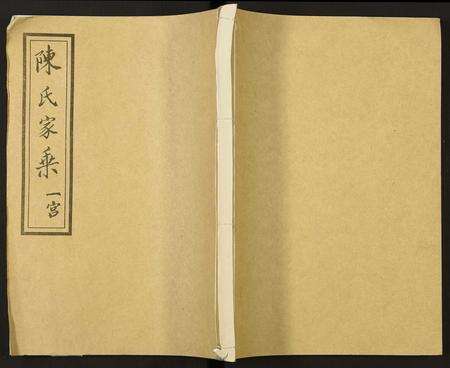 陳氏家乗 一宮